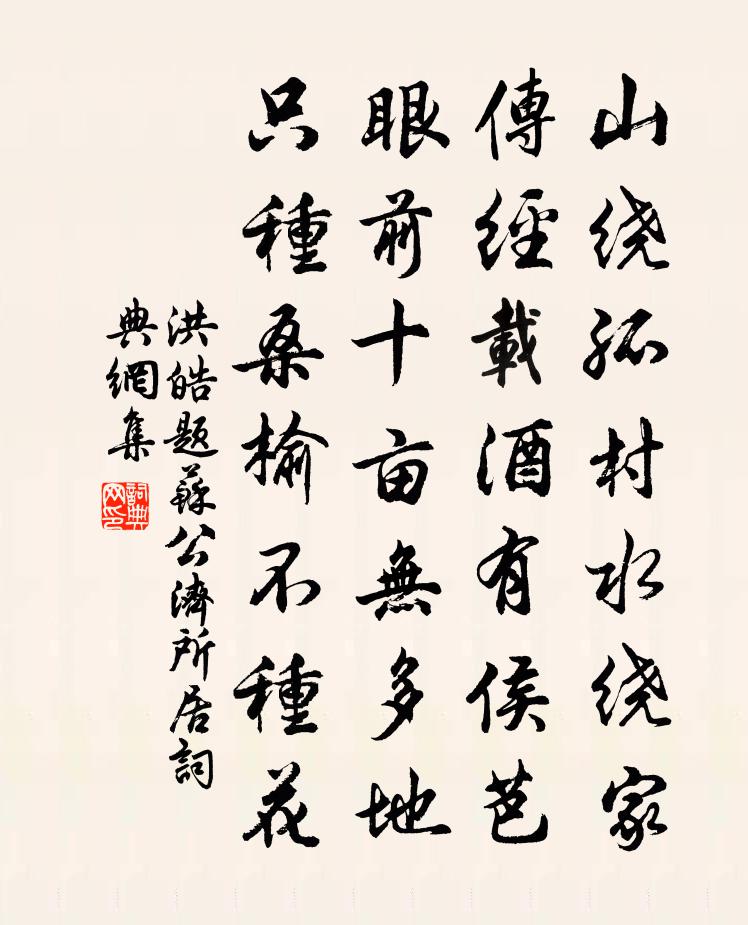 山绕孤村水绕家
傳經載酒有侯芭
眼前十亩無多地
只種桑榆不種花
洪皓題蘇公濟所居詞
典網集
詞典
网印